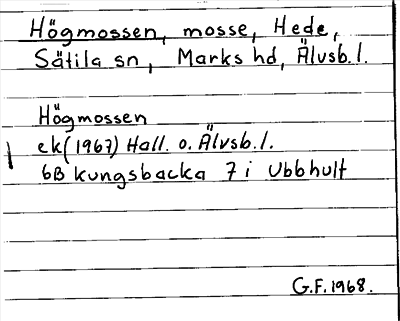 Högmossen, mosse, Hede,
Sätila sn, Marks hd, Älvsb. l.
Högmossen
ek (1967) Hall. o. Älvsb. l.
6B Kungsbacka 7 i Ubbhult
G.F. 1968.